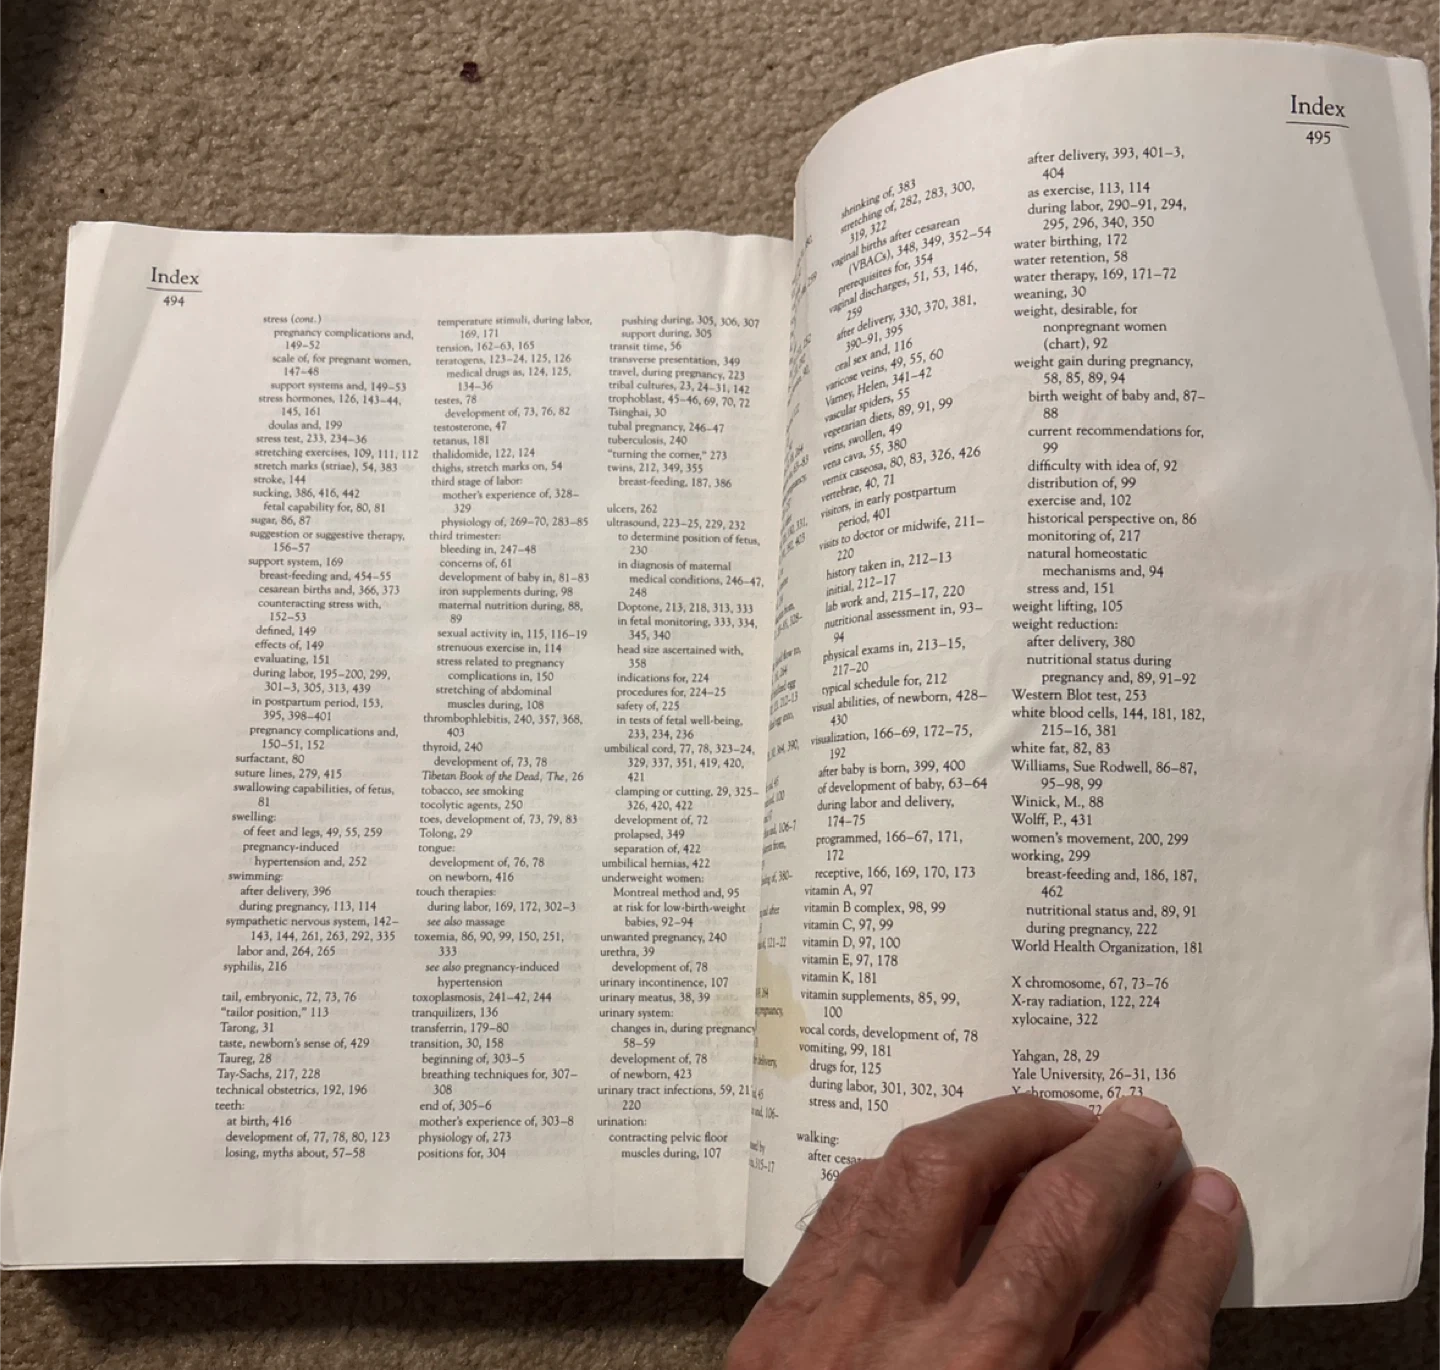 Index
494
stress (cont.)
pregnancy complications and,
149–52
scale of, for pregnant women,
147–48
support systems and, 149–53
stress hormones, 126, 143–44,
145, 161
doulas and, 199
stress test, 233, 234–36
stretching exercises, 109, 111, 112
stretch marks (striae), 54, 383
stroke, 144
sucking, 386, 416, 442
fetal capability for, 80, 81
sugar, 86, 87
suggestion or suggestive therapy,
156–57
support system, 169
breast-feeding and, 454–55
cesarean births and, 366, 373
counteracting stress with,
152–53
defined, 149
effects of, 149
evaluating, 151
during labor, 195–200, 299,
301–3, 305, 313, 439
in postpartum period, 153,
395, 398–401
pregnancy complications and,
150–51, 152
surfactant, 80
suture lines, 279, 415
swallowing capabilities, of fetus,
81
swelling:
of feet and legs, 49, 55, 259
pregnancy-induced
hypertension and, 252
swimming:
after delivery, 396
during pregnancy, 113, 114
sympathetic nervous system, 142–
143, 144, 261, 263, 292, 335
labor and, 264, 265
syphilis, 216
tail, embryonic, 72, 73, 76
"tailor position," 113
Tarong, 31
taste, newborn's sense of, 429
Taureg, 28
Tay-Sachs, 217, 228
technical obstetrics, 192, 196
teeth:
at birth, 416
development of, 77, 78, 80, 123
losing, myths about, 57–58
temperature stimuli, during labor,
169, 171
tension, 162–63, 165
teratogens, 123–24, 125, 126
medical drugs as, 124, 125,
134–36
testes, 78
development of, 73, 76, 82
testosterone, 47
tetanus, 181
thalidomide, 122, 124
thighs, stretch marks on, 54
third stage of labor:
mother's experience of, 328–
329
physiology of, 269–70, 283–85
third trimester:
bleeding in, 247–48
concerns of, 61
development of baby in, 81–83
iron supplements during, 98
maternal nutrition during, 88,
89
sexual activity in, 115, 116–19
strenuous exercise in, 114
stress related to pregnancy
complications in, 150
stretching of abdominal
muscles during, 108
thrombophlebitis, 240, 357, 368,
403
thyroid, 240
development of, 73, 78
Tibetan Book of the Dead, The, 26
tobacco, see smoking
tocolytic agents, 250
toes, development of, 73, 79, 83
Tolong, 29
tongue:
development of, 76, 78
on newborn, 416
touch therapies:
during labor, 169, 172, 302–3
see also massage
toxemia, 86, 90, 99, 150, 251,
333
see also pregnancy-induced
hypertension
toxoplasmosis, 241–42, 244
tranquilizers, 136
transferrin, 179–80
transition, 30, 158
beginning of, 303–5
breathing techniques for, 307–
308
end of, 305–6
mother's experience of, 303–8
physiology of, 273
positions for, 304
pushing during, 305, 306, 307
support during, 305
transit time, 56
transverse presentation, 349
travel, during pregnancy, 223
tribal cultures, 23, 24–31, 142
trophoblast, 45–46, 69, 70, 72
Tsinghai, 30
tubal pregnancy, 246–47
tuberculosis, 240
"turning the corner," 273
twins, 212, 349, 355
breast-feeding, 187, 386
ulcers, 262
ultrasound, 223–25, 229, 232
to determine position of fetus,
230
in diagnosis of maternal
medical conditions, 246–47,
248
Doptone, 213, 218, 313, 333
in fetal monitoring, 333, 334,
345, 340
head size ascertained with,
358
indications for, 224
procedures for, 224–25
safety of, 225
in tests of fetal well-being,
233, 234, 236
umbilical cord, 77, 78, 323–24,
329, 337, 351, 419, 420,
421
clamping or cutting, 29, 325–
326, 420, 422
development of, 72
prolapsed, 349
separation of, 422
umbilical hernias, 422
underweight women:
Montreal method and, 95
at risk for low-birth-weight
babies, 92–94
unwanted pregnancy, 240
urethra, 39
development of, 78
urinary incontinence, 107
urinary meatus, 38, 39
urinary system:
changes in, during pregnancy
58–59
development of, 78
of newborn, 423
urinary tract infections, 59,
220
urination:
contracting pelvic floor
muscles during, 107
Index
495
shrinking of, 383
stretching of, 282, 283, 300,
319, 322
vaginal births after cesarean
(VBACs), 348, 349, 352–54
prerequisites for, 354
vaginal discharges, 51, 53, 146,
259
after delivery, 330, 370, 381,
390–91, 395
oral sex and, 116
varicose veins, 49, 55, 60
Varney, Helen, 341–42
vascular spiders, 55
vegetarian diets, 89, 91, 99
veins, swollen, 49
vena cava, 55, 380
vernix caseosa, 80, 83, 326, 426
vertebrae, 40, 71
visitors, in early postpartum
period, 401
visits to doctor or midwife, 211–
220
history taken in, 212–13
initial, 212–17
lab work and, 215–17, 220
nutritional assessment in, 93–
94
physical exams in, 213–15,
217–20
typical schedule for, 212
visual abilities, of newborn, 428–
430
visualization, 166–69, 172–75,
192
after baby is born, 399, 400
of development of baby, 63–64
during labor and delivery,
174–75
programmed, 166–67, 171,
172
receptive, 166, 169, 170, 173
vitamin A, 97
vitamin B complex, 98, 99
vitamin C, 97, 99
vitamin D, 97, 100
vitamin E, 97, 178
vitamin K, 181
vitamin supplements, 85, 99,
100
vocal cords, development of, 78
vomiting, 99, 181
drugs for, 125
during labor, 301, 302, 304
stress and, 150
walking:
after
369
after delivery, 393, 401–3,
404
as exercise, 113, 114
during labor, 290–91, 294,
295, 296, 340, 350
water birthing, 172
water retention, 58
water therapy, 169, 171–72
weaning, 30
weight, desirable, for
nonpregnant women
(chart), 92
weight gain during pregnancy,
58, 85, 89, 94
birth weight of baby and, 87–
88
current recommendations for,
99
difficulty with idea of, 92
distribution of, 99
exercise and, 102
historical perspective on, 86
monitoring of, 217
natural homeostatic
mechanisms and, 94
stress and, 151
weight lifting, 105
weight reduction:
after delivery, 380
nutritional status during
pregnancy and, 89, 91–92
Western Blot test, 253
white blood cells, 144, 181, 182,
215–16, 381
white fat, 82, 83
Williams, Sue Rodwell, 86–87,
95–98, 99
Winick, M., 88
Wolff, P., 431
women's movement, 200, 299
working, 299
breast-feeding and, 186, 187,
462
nutritional status and, 89, 91
during pregnancy, 222
World Health Organization, 181
X chromosome, 67, 73–76
X-ray radiation, 122, 224
xylocaine, 322
Yahgan, 28, 29
Yale University, 26–31, 136
Y chromosome, 67, 73
72